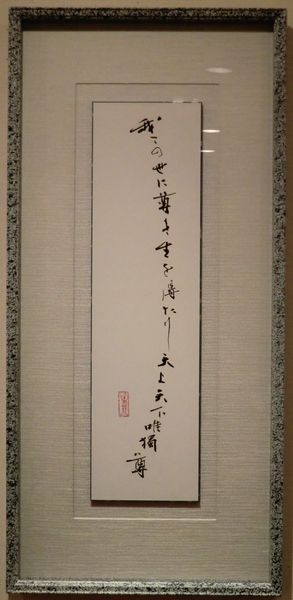 我この世に尊き生を得たり天上天下唯獨尊